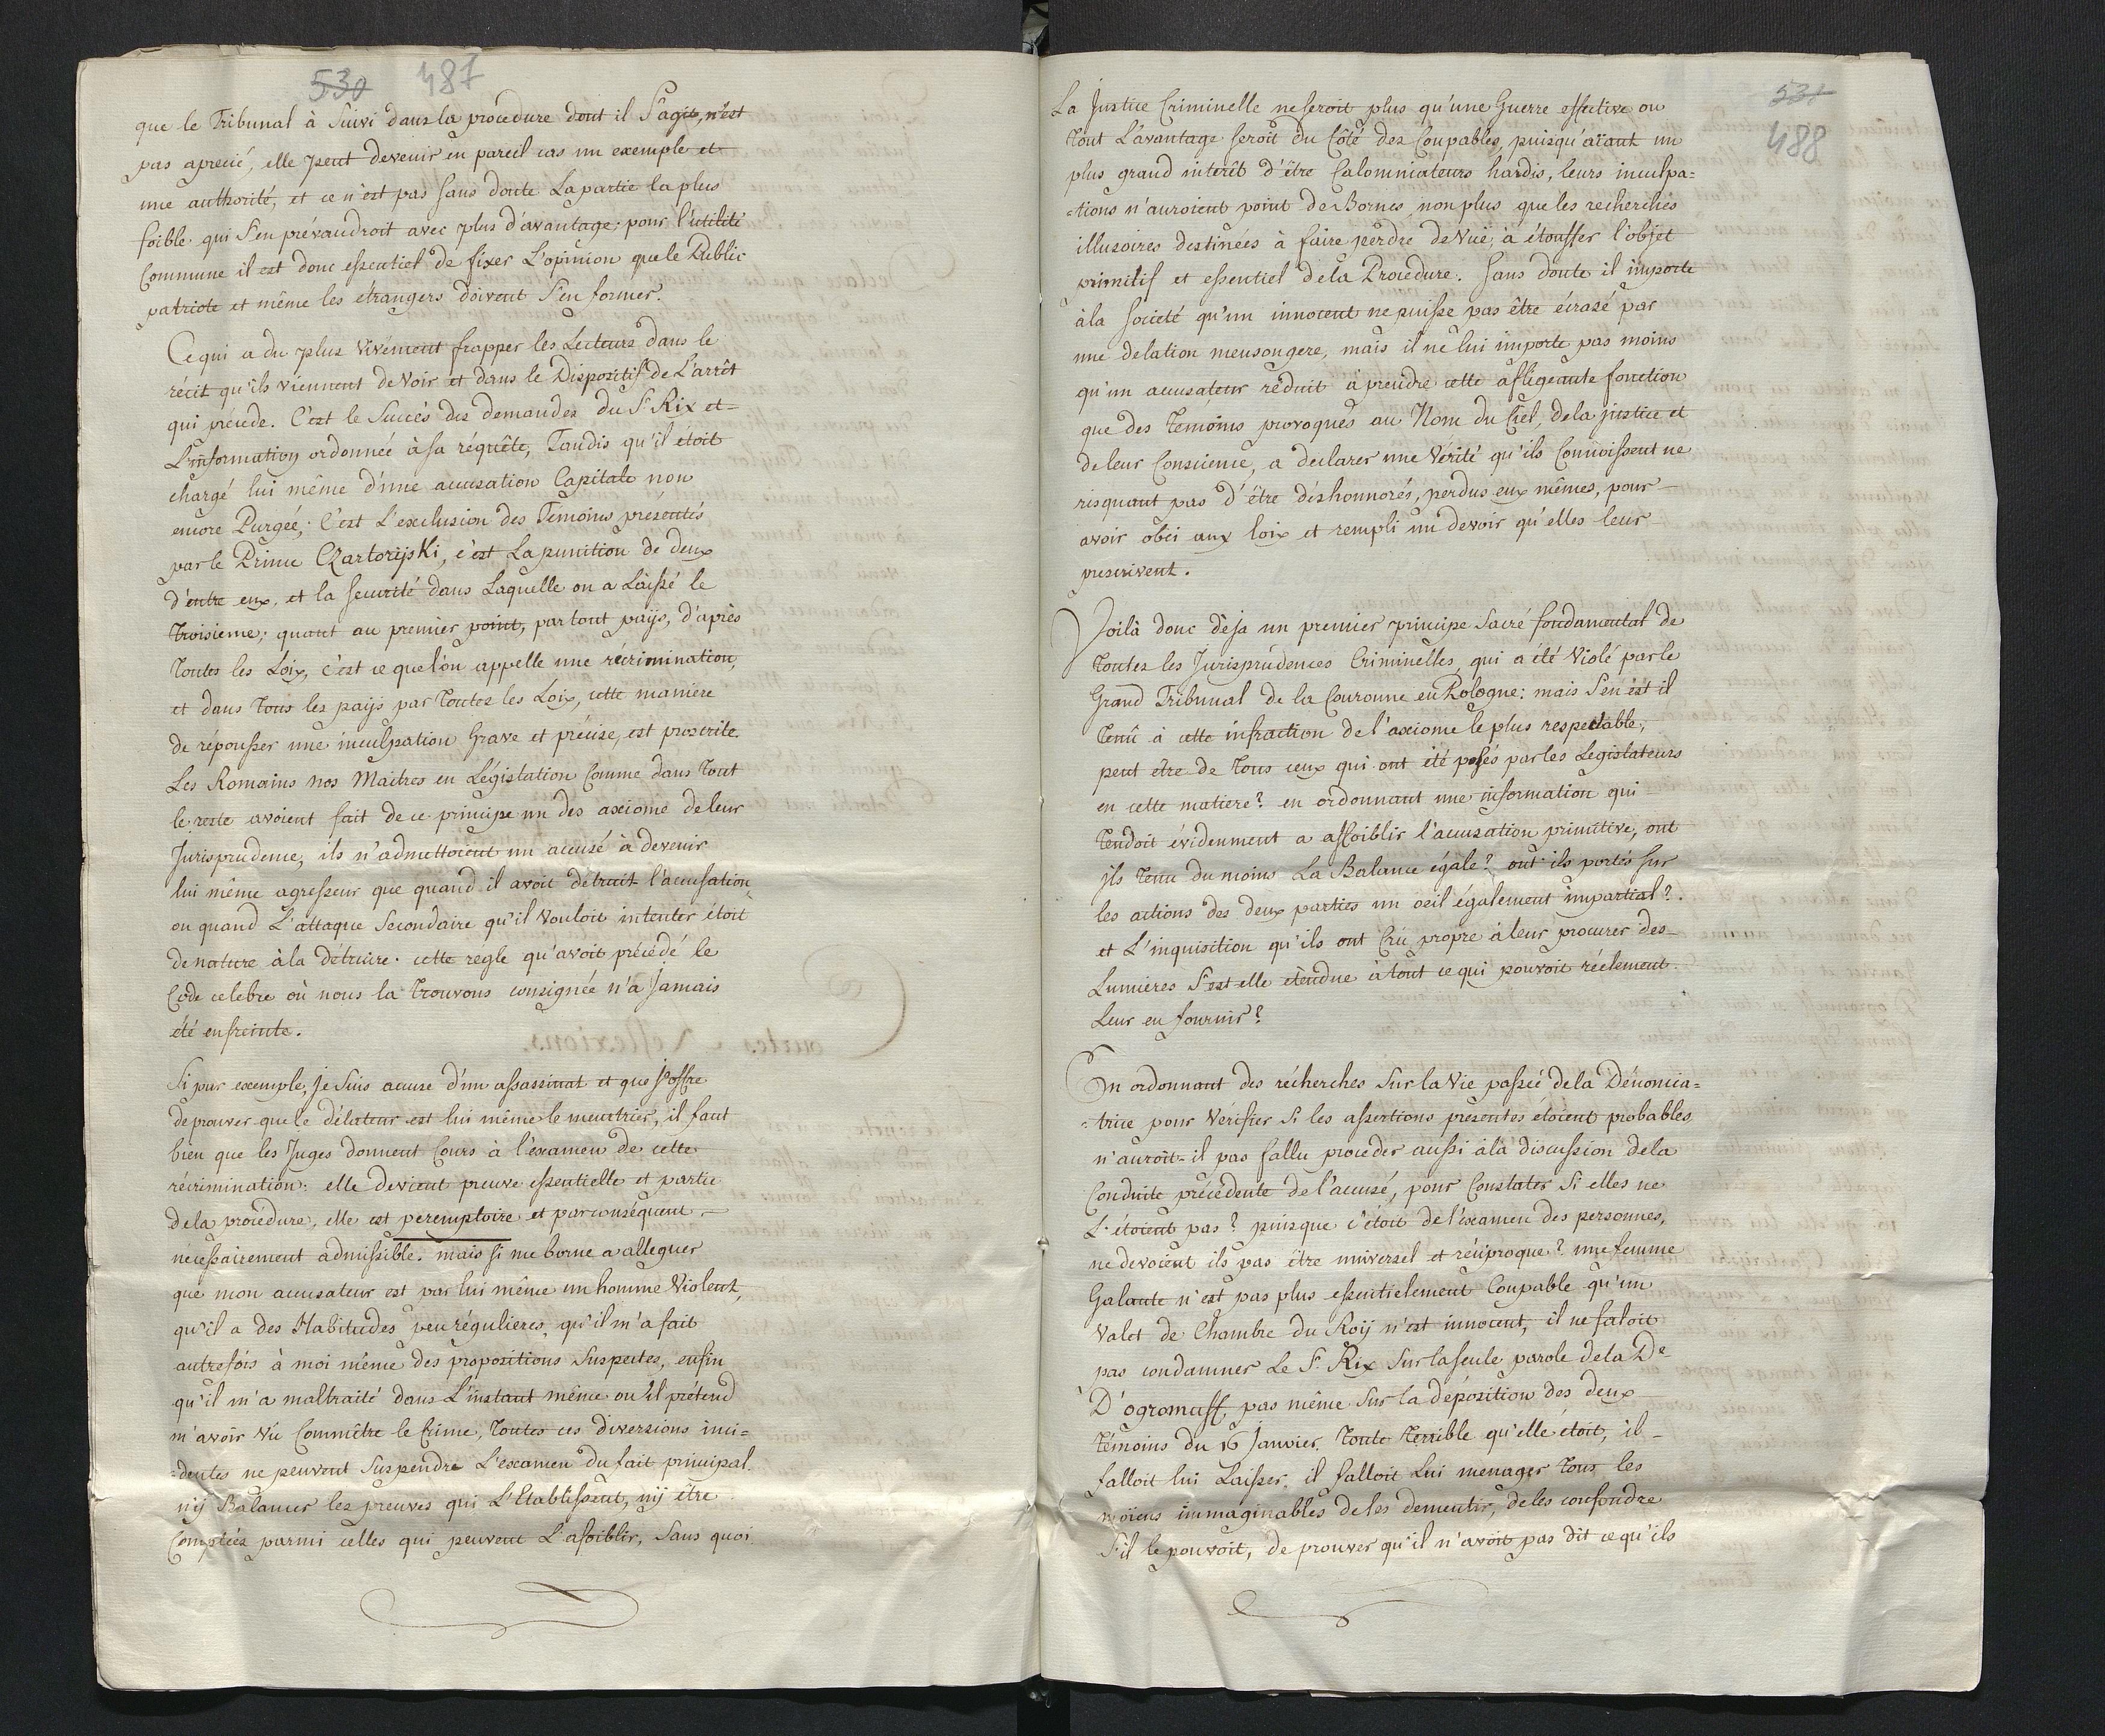 530 487
que le Tribunal à Suivi dans la procedure dont il S'agit, n'est
pas aprecié, elle peut devenir en pareil cas un exemple et
une authorité, et ce n'est pas sans doute La partie la plus
foible qui S'en prévaudroit avec plus d'avantage; pour l'utilité
Commune il est donc essentiel de fixer L'opinion que le Public
patriote et même les étrangers doivent S'en former.
Ce qui a du plus Vivement frapper les Lecteurs dans le
récit qu'ils viennent de Voir et dans le Dispositif de L'arrêt
qui précede. C'est le Succès des demandes du Sr. Rix et
L'information ordonnée à sa réquête, Tandis qu'il étoit
chargé lui même d'une accusation Capitale non
encore Purgée; C'est L'exclusion des Témoins présentés
par le Prince Czartorijski, c'est La punition de deux
d'entre eux, et la securité dans Laquelle on a Laissé le
Troisieme; quant au premier point, par tout païs, d'après
Toutes les Loix, c'est ce que l'on appelle une récrimination,
et dans Tous les païs par Toutes les Loix, cette maniere
de répousser une inculpation Grave et précise, est proscrite.
Les Romains nos Maitres en Législation Comme dans Tout
le reste avoient fait de ce principe un des axiome de leur
Jurisprudence, ils n'admettoient un accusé à devenir
lui même agresseur que quand il avoit détruit l'accusation,
ou quand L'attaque Secondaire qu'il Vouloit intenter étoit
de nature à la détruire. cette regle qu'avoit précédé le
Code celebre où nous la Trouvons consignée n'a Jamais
été enfreinte.
Si par exemple, Je Suis accuse d'un assassinat et que J'offre
de prouver que le délateur est lui même le meurtrier, il faut
bien que les Juges donnent Cours à l'éxamen de cette
récrimination: elle devient preuve essentielle et partie
de la procédure, elle est peremptoire et par conséquent
necessairement admissible. mais si me borne a alleguer
que mon accusateur est par lui même un homme Violent,
qu'il a des Habitudes peu régulieres, qu'il m'a fait
autrefois à moi même des propositions Suspectes, enfin
qu'il m'a maltraité dans L'instant même ou il prétend
m'avoir Vû Commêtre le Crime, Toutes ces diversions inci=
=dentes ne peuvent Suspendre L'examen du fait principal.
nij Balancer les preuves qui L'Etablissent, nij être
Comptées parmi celles qui peuvent L'afoiblir, Sans quoi
531
488
La Justice Criminelle ne seroit plus qu'une Guerre effective ou
Tout L'avantage seroit du Côté des Coupables, puisqu'aïant un
plus grand interêt d'être Calomniateurs hardis, leurs inculpa=
=tions n'auroient point de Bornes non plus que les recherches
illusoires destinées à faire perdre de Vuë, à étouffer l'objet
primitif et essentiel de la Procedure. Sans doute il importe
à la Societé qu'un innocent ne puisse pas être écrasé par
une delation mensongere, mais il ne lui importe pas moins
qu'un accusateur réduit à prendre cette afligeante fonction
que des Temoins provoqués au Nom du Ciel, de la justice et
de leur Conscience, a declarer une Vérité qu'ils Connoissent ne
risquant pas d'être déshonnorés, perdus eux mêmes, pour
avoir obéi aux loix et rempli un devoir qu'elles leur
prescrivent.
Voilà donc dèja un premier principe Sacré fondamental de
Toutes les Jurisprudences Criminelles, qui a été Violé par le
Grand Tribunal de la Couronne en Pologne: mais S'en est il
Tenû à cette infraction de l'axiome le plus respectable,
peut être de Tous ceux qui ont été posés par les Legislateurs
en cette matiere? en ordonnant une information qui
Tendoit évidenment a affoiblir l'accusation primitive, ont
ils Tenu du moins La Balance égale? ont ils portés sur
les actions des deux parties un oeil également impartial?
et L'inquisition qu'ils ont Crû propre à leur procurer des
Lumieres S'est elle étendue à tout ce qui pouvoit réelement
Leur en fournir?
En ordonnant des récherches Sur la Vie passée de la Dénoncia=
=trice pour Vérifier Si les assertions presentes étoient probables
n'auroit-il pas fallu proceder aussi à la discussion de la
Conduite précedente de l'accusé, pour Constater Si elles ne
L'étoient pas? puisque c'étoit de l'éxamen des personnes,
ne devoient ils pas être universel et réciproque? une femme
Galante n'est pas plus essentielement Coupable qu'un
Valet de Chambre du Roij n'est innocent, il ne faloit
pas condamner Le Sr. Rix Sur la seule parole de la De
D'ogromuff, pas même Sur la déposition des deux
témoins du 16 Janvier. Toute Terrible qu'elle étoit, il
falloit lui Laisser, il falloit Lui menager Tous les
moïens immaginables de les dementir, de les confondre
S'il le pouvoit, de prouver qu'il n'avoit pas dit ce qu'ils